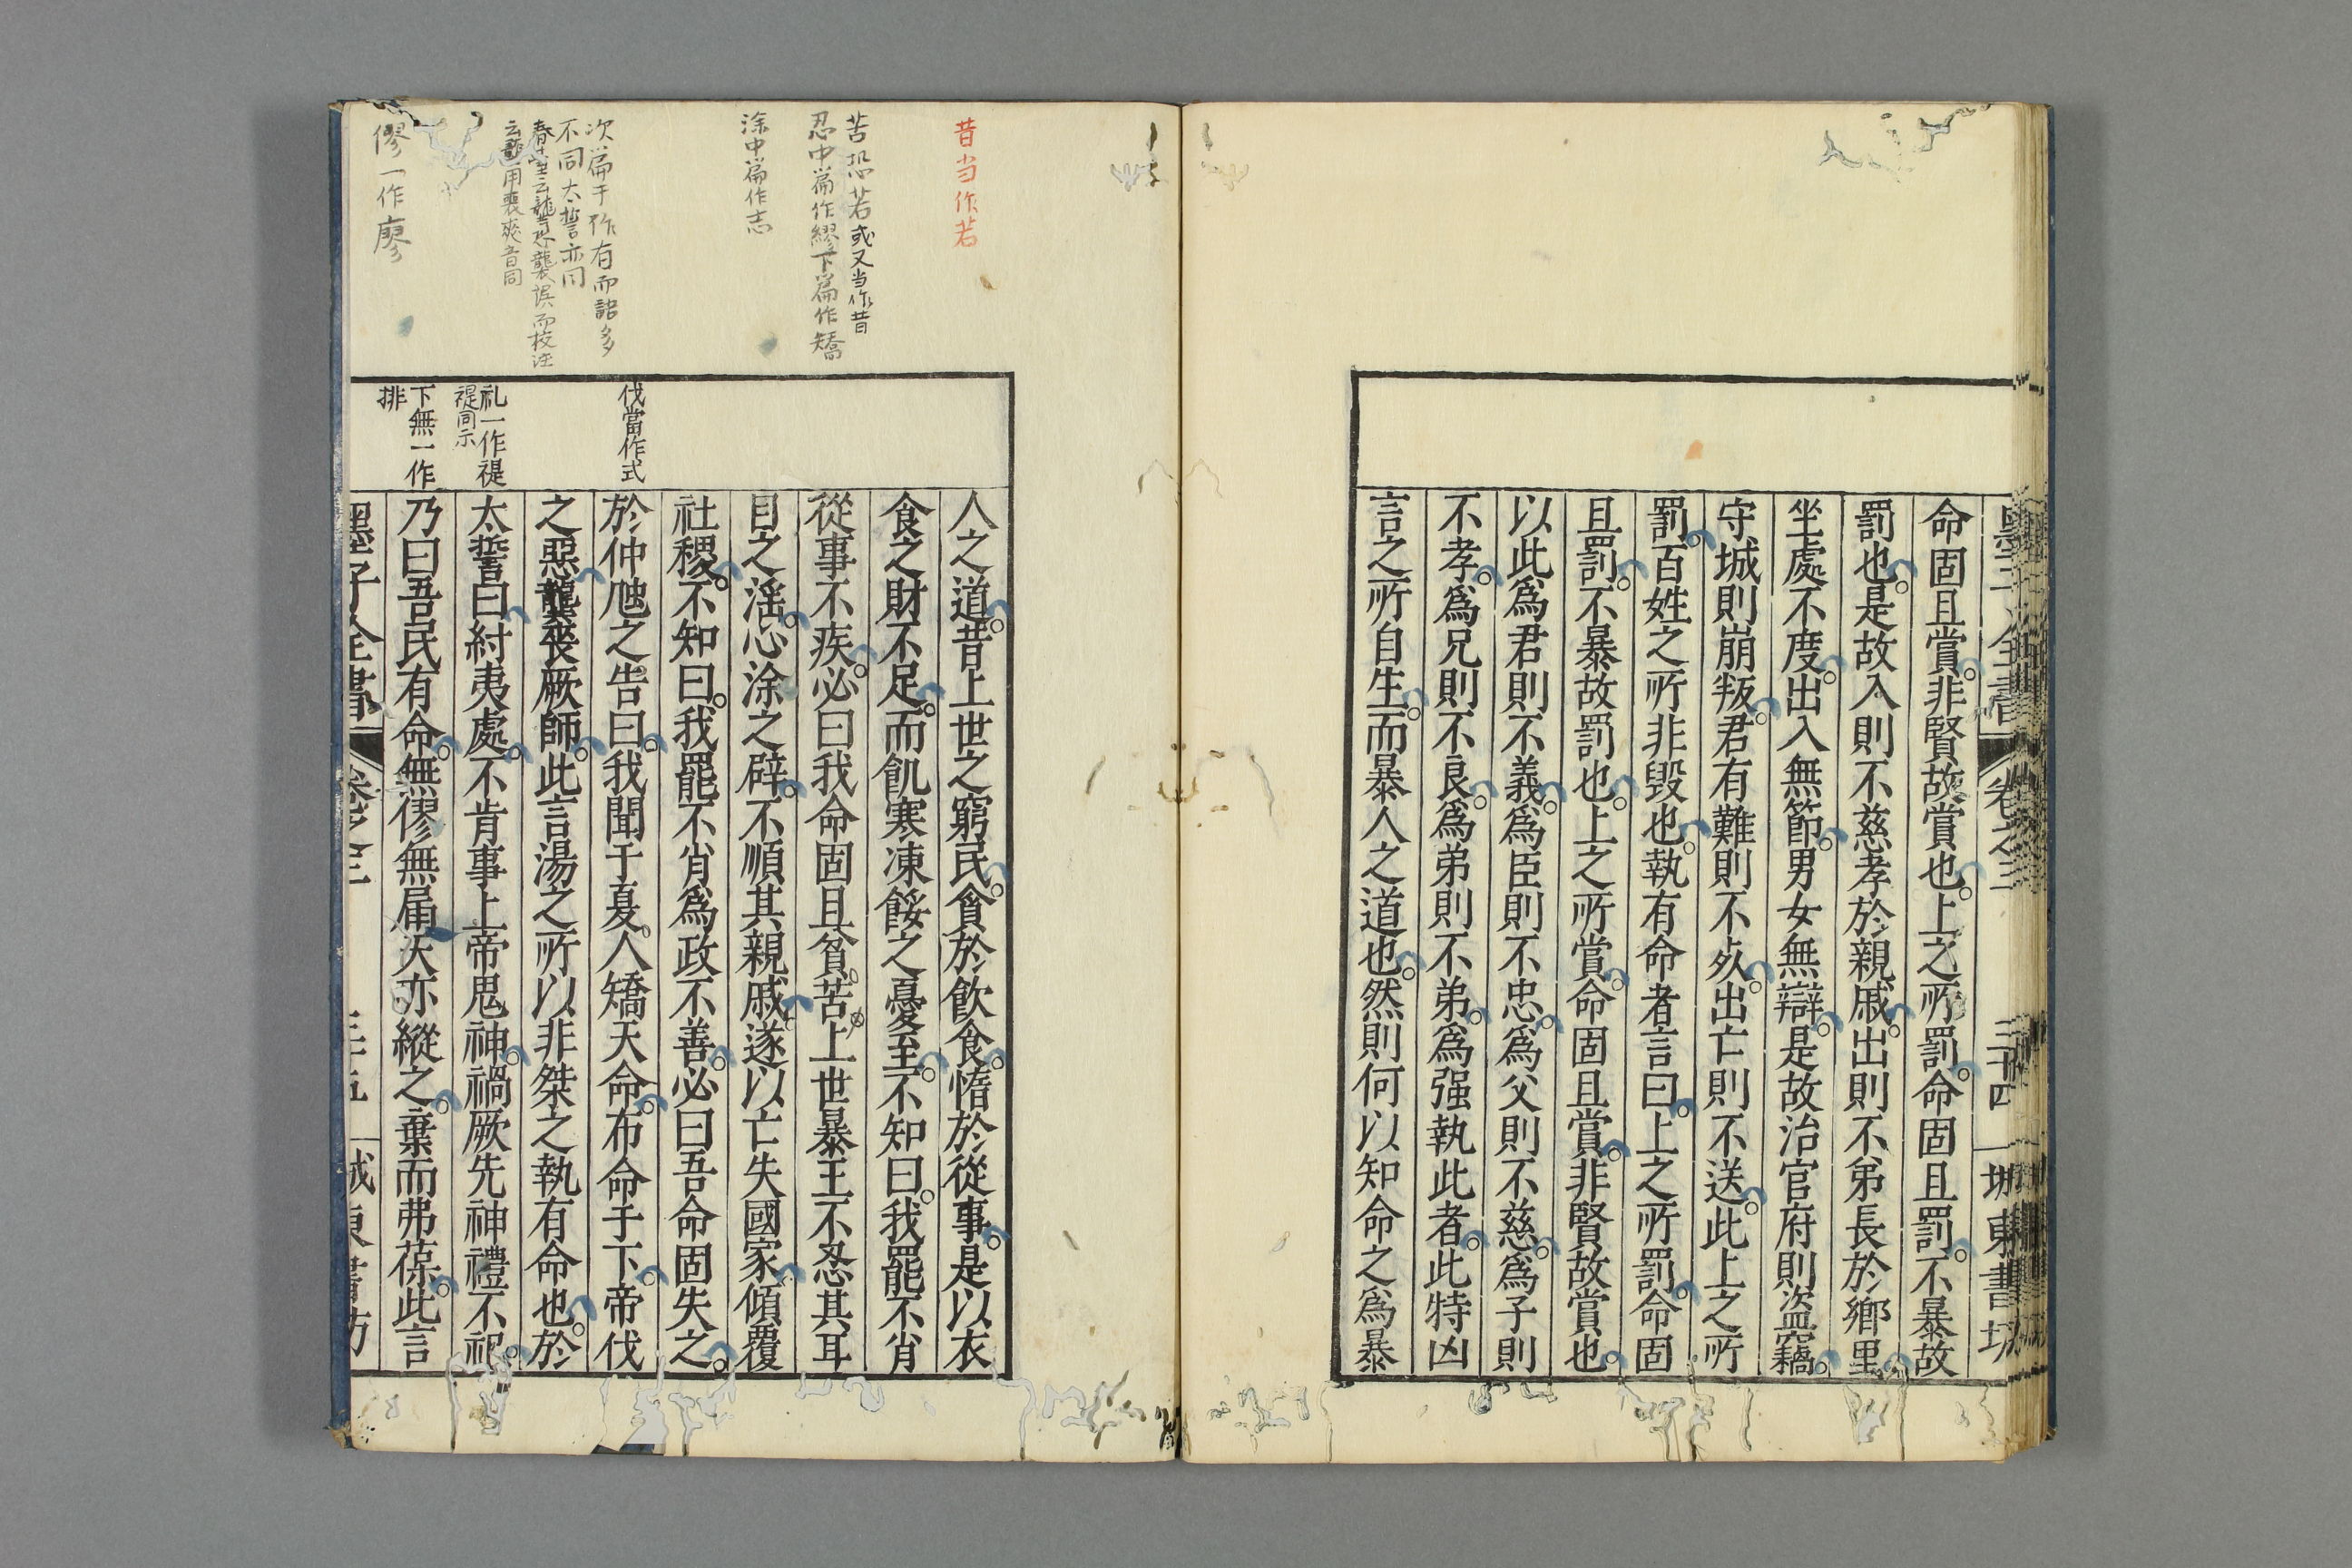 命固且賞。非賢故賞也。上之所罰。命固且罰。不暴故
罰也。是故入則不慈孝於親戚。出則不弟長於鄉里。
坐處不度。出入無節。男女無辯。是故治官府則盜竊。
守城則崩叛。君有難則不死。出亡則不送。此上之所
罰。百姓之所非毀也。執有命者言曰。上之所罰。命固
且罰。不暴故罰也。上之所賞。命固且賞。非賢故賞也。
以此爲君則不義。爲臣則不忠。爲父則不慈。爲子則
不孝。爲兄則不良。爲弟則不弟。爲强執此者。此特凶
言之所自生。而暴人之道也。然則何以知命之爲暴
墨子全書 卷之三 三十四 城東書坊
昔当作若
苦恐若或又当作昔
忍中篇作繆下篇作矯
涂中篇作志
次篇于作有而詔多
不同太誓亦同
云龔用喪爽音同
僇一作廖
伐當作式
礼一作禔
禔同示
下無一作
排
人之道。昔上世之窮民。貪於飲食。惰於從事。是以衣
食之財不足。而飢寒凍餒之憂至。不知曰。我罷不肖
從事不疾。必曰我命固且貧。苦上世暴王不忍其耳
目之滛。心涂之辟。不順其親戚。遂以亡失國家傾覆
社稷。不知曰。我罷不肖爲政不善。必曰吾命固失之。
於仲虺之告曰。我聞于夏。人矯天命。布命于下。帝伐
之惡。龔喪厥師。此言湯之所以非桀之執有命也。於
太誓曰。紂夷處。不肯事上帝鬼神。禍厥先神禮不祀。
乃曰吾民有命。無僇無届天亦縱之。棄而弗葆。此言
墨子全書 卷之三 三十五 城東書坊